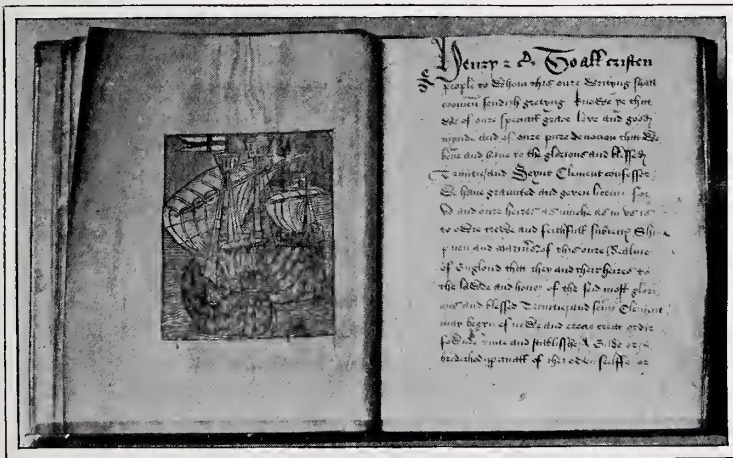 Henry &c. To all cristen
people to whom this oure writyng shall
comen sendith gretyng Knowe ye that
we of oure speciall grace love and good
mynde and of oure pure devocion that we
have and bere to the glorious and blessed
Trinitie and Seynt Clement confessor
We have graunted and geven licens for
us and oure heires as muche as in us is
to oure trewe and feithfull subiettes Ship
men and mariners of this oure Realme
of Englond that they and their heires to
the lawde and honor of the seid most glori
ous and blessed Trinitie and seint Clement
may begyn of newe and erecte create ordeyn
founde unite and stablisshe A Gilde or
brederhed perpetuall of ther owen selffe or